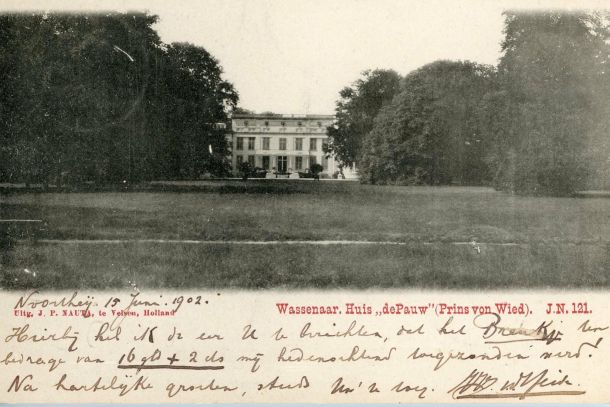 Noortheij 15 Juni 1902.
Uitg. J. P. NAUTA, te Velsen, Holland
Wassenaar. Huis „dePauw" (Prins von Wied). J.N. 121.
Hierbij heb ik de eer U te berichten, dat het
bedrage van 16 gld + 2 cts mij hedenochtend toegezonden werd!
Na hartelijke groeten, steeds